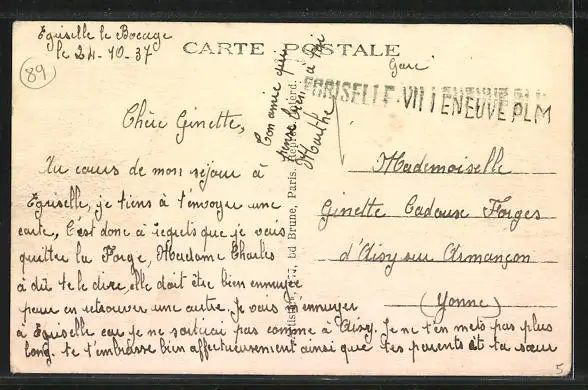 Eguiselle le Bocage
le 24-10-37
89
CARTE POSTALE
Gare
VILLENEUVE PLM
Chère Ginette,
Au cours de mon séjour à
Eguiselle, je tiens à t'envoyer une
carte, C'est donc à regrets que je vais
quitter la Forge, Madame Charles
a dû te le dire, elle doit être bien ennuyée
pour en retrouver une autre. Je vais m'ennuyer
à Eguiselle car je ne sortirai pas comme à Aisy. Je ne t'en mets pas plus
long. Je t'embrasse bien affectueusement ainsi que tes parents et ta sœur
Ton amie qui
pense bien à toi
Marthe
bd Brune, Paris. Reproд. interd.
Mademoiselle
Ginette Cadouse Forges
d'Aisy sur Armançon
(Yonne)
5